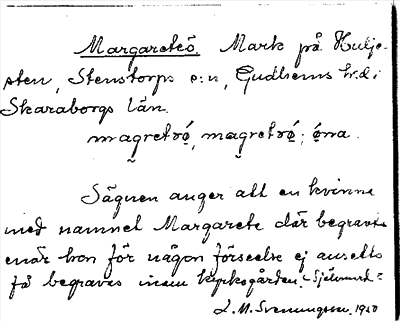 Margaretrö. Mark på Hulje-
sten, Stenstorps s:n, Gudhems hd i
Skaraborgs län.
magretrö, magretrö; öna
Sägnen anger att en kvinna
med namnet Margareta där begravts
enär hon för någon förseelse ej ansetts
få begravas inom kyrkogården. Självmord =
L. M. Svenungsson. 1920